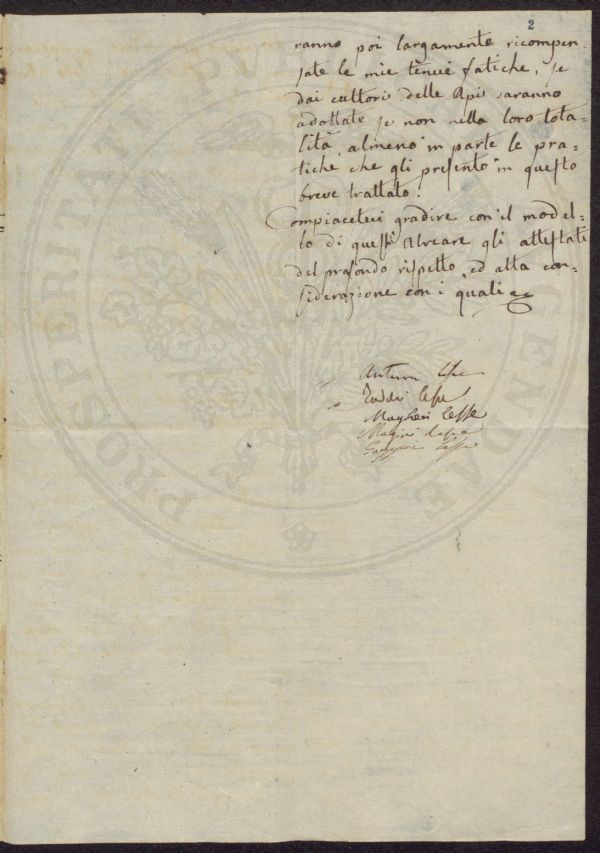 2
ranno poi largamente ricompen-
sate le mie tenui fatiche, se
dai cultori delle Api saranno
adottate se non nella loro tota-
lità, almeno in parte le pra-
tiche che gli presento in questo
breve trattato.
Compiacetevi gradire con il model-
lo di questi Alveare gli attestati
del profondo rispetto, ed alta con-
siderazione con i quali
Taddei lesse
Magheri lesse
lesse
lesse
PROSPERITATI PVBLICAE AVGENDAE